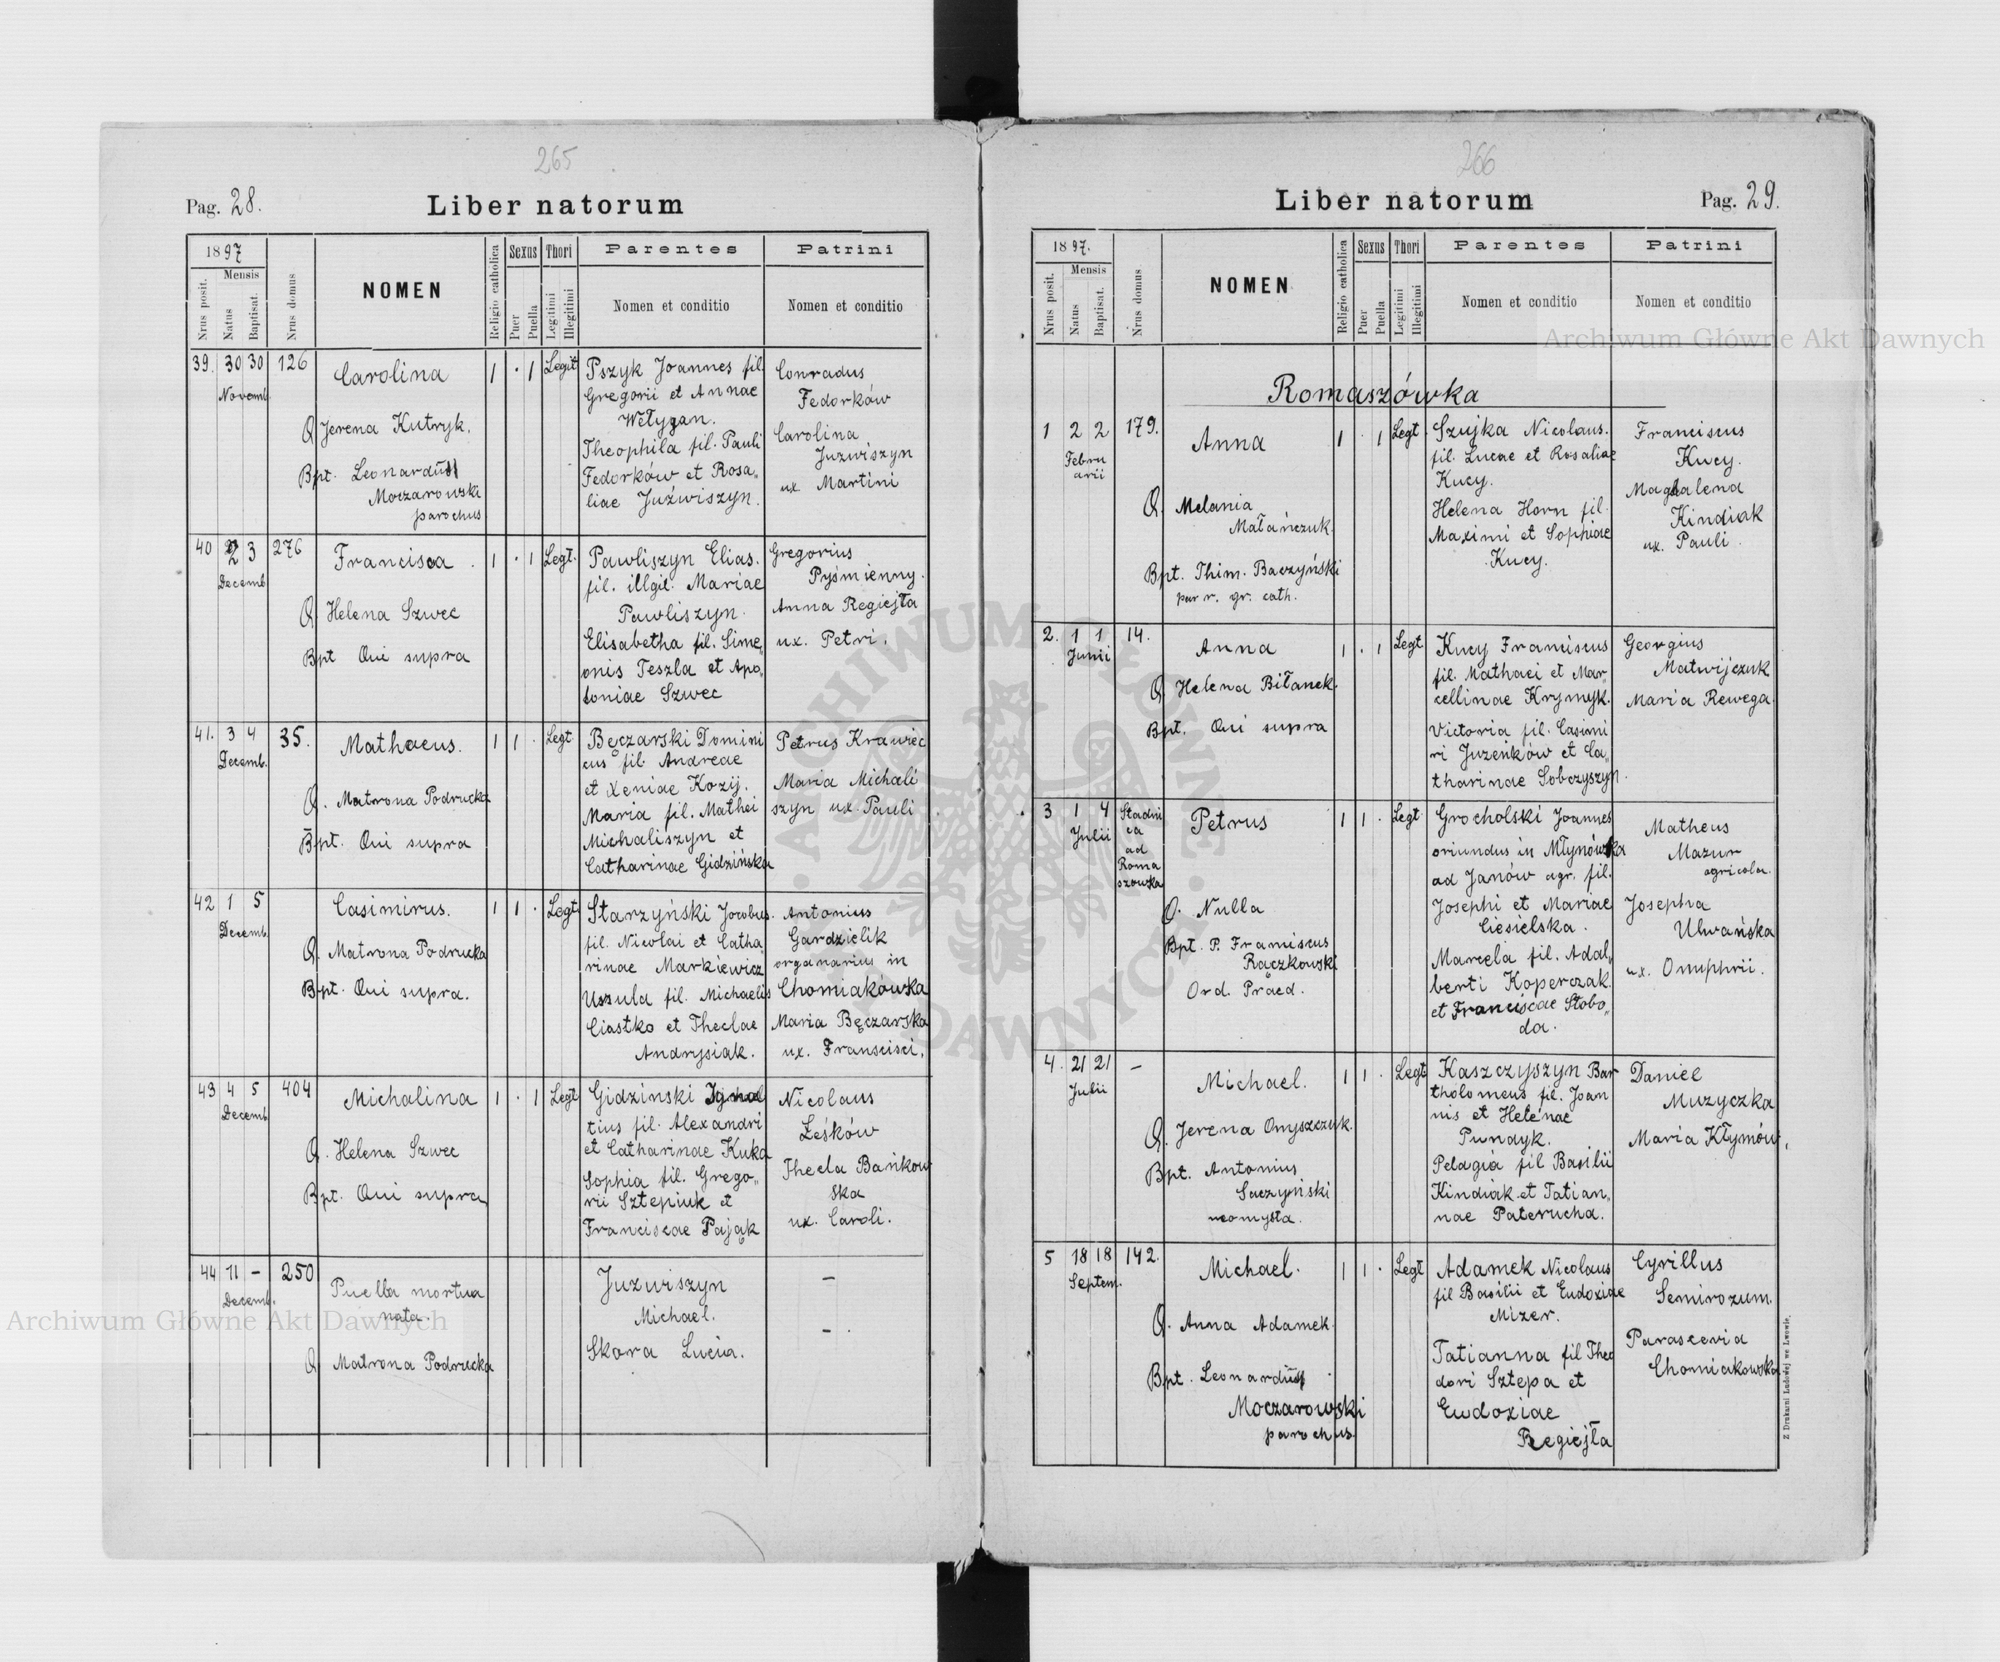 265
Pag. 28.
Liber natorum
1897
Mensis
Nrus posit.
Natus
Baptisat.
Nrus domus
NOMEN
Religio catholica
Sexus
Puer
Puella
Thori
Legitimi
Illegitimi
Parentes
Nomen et conditio
Patrini
Nomen et conditio
39. 30 30 126
Novemb.
Carolina
O Jerena Kutryk.
Bpt. Leonardus
Moczarowski
parochus
1 · 1 Legit
Pszyk Joannes fil.
Gregorii et Annae
Wełygan.
Theophila fil. Pauli
Fedorków et Rosa„
liae Juźwiszyn.
Conradus
Fedorków
Carolina
Juzwiszyn
ux. Martini
40 2 3 276
Decemb
Francisca.
O Helena Szwec
Bpt Qui supra
1 · 1 Legt.
Pawliszyn Elias.
fil. illgit. Mariae
Pawliszyn.
Elisabetha fil. Sime„
onis Teszla et Apo„
loniae Szwec
Gregorius
Pyśmienny.
Anna Regiejła
ux. Petri.
41. 3 4 35.
Decemb.
Mathaeus.
O. Matrona Podrucka
Bpt. Qui supra
1 1 · Legt
Bęczarski Domini
cus fil. Andreae
et Xeniae Kozij.
Maria fil. Mathei
Michaliszyn et
Catharinae Gidzińska
Petrus Krawiec
Maria Michali
szyn ux. Pauli
42 1 5
Decemb.
Casimirus.
O. Matrona Podrucka
Bpt. Qui supra.
1 1 · Legt
Starzyński Jacobus.
fil. Nicolai et Catha
rinae Markiewicz
Uszula fil. Michaelis
Ciastko et Theclae
Andrysiak.
Antonius
Gardzielik
organarius in
Chomiakówka
Maria Bęczarska
ux. Franscisci.
43 4 5 404
Decemb
Michalina
O. Helena Szwec
Bpt. Qui supra
1 · 1 Legt
Gidzinski Ignat
tius fil. Alexandri
et Catharinae Kuka
Sophia fil. Grego„
rii Sztepiuk et
Franciscae Pająk
Nicolaus
Leśków
Thecla Bańkow
ska
ux. Caroli.
44 11 – 250
Decemb.
Puella mortua
nata.
O Matrona Podrucka
Juzwiszyn
Michael.
Skora Lucia.
–
– .
266
Liber natorum
Pag. 29.
1897.
Mensis
Nrus posit.
Natus
Baptisat.
Nrus domus
NOMEN
Religio catholica
Sexus
Puer
Puella
Thori
Legitimi
Illegitimi
Parentes
Nomen et conditio
Patrini
Nomen et conditio
Romaszówka
1 2 2 179.
Febru
arii
Anna
O. Melania
Małańczuk.
Bpt. Thim. Baczyński
par r. gr. cath.
1 · 1 Legt
Szujka Nicolaus.
fil. Lucae et Rosaliae
Kucy.
Helena Horn fil.
Maximi et Sophiae
Kucy.
Franciscus
Kucy.
Magdalena
Kindiak
ux. Pauli.
2. 1 1 14.
Junii
Anna
O. Helena Biłanek.
Bpt. Qui supra
1 · 1 Legt
Kucy Franciscus
fil. Mathaei et Mar„
cellinae Krymyk.
Victoria fil. Casimi
ri Juzeńków et Ca„
tharinae Sobczyszyn.
Georgius
Matwijczuk
Maria Rewega.
3 1 4 Stadni
Julii
ca
ad
Roma
szowka
Petrus
O. Nulla
Bpt. P. Franciscus
Rączkowski
Ord. Praed.
1 1 · Legt
Grocholski Joannes
oriundus in Młynówka
ad Janów agr. fil.
Josephi et Mariae
Ciesielska.
Marcela fil. Adal„
berti Koperczak.
et Franciscae Słobo„
da.
Matheus
Mazur
agricola.
Josepha
Ulwańska
ux. Onuphrii.
4. 21 21 –
Julii
Michael.
O. Jerena Onyszczuk.
Bpt. Antonius
Saczyński
neomysta.
1 1 · Legt
Kaszczyszyn Bar
tholomeus fil. Joan
nis et Helenae
Pundyk.
Pelagia fil Basilii
Kindiak et Tatian„
nae Paterucha.
Daniel
Muzyczka
Maria Kłymów.
5 18 18 142.
Septem.
Michael.
O. Anna Adamek.
Bpt. Leonardus
Moczarowski
parochus
1 1 · Legt
Adamek Nicolaus
fil Basilii et Eudoxiae
Mizer.
Tatianna fil Theo
dori Sztepa et
Eudoxiae
Regiejła
Cyrillus
Semirozum.
Parascevia
Chomiakowska
Z Drukarni Ludowej we Lwowie.
Archiwum Główne Akt Dawnych
Archiwum Główne Akt Dawnych
ARCHIWUM GŁÓWNE AKT DAWNYCH